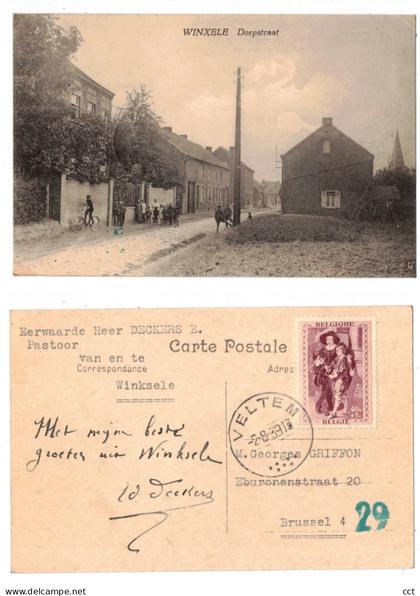 WINXELE Dorpstraat
Eerwaarde Heer DECKERS E.
Pastoor
van en te
Winksele
Carte Postale
Correspondance
Adres
BELGIQUE
40c
BELGIE
VELTEM
-2-8-39
Met mijn beste
groeten uit Winksele
Ed Deckers
M. Georges GRIFFON
Eburonenstraat 20
Brussel 4
29
cct